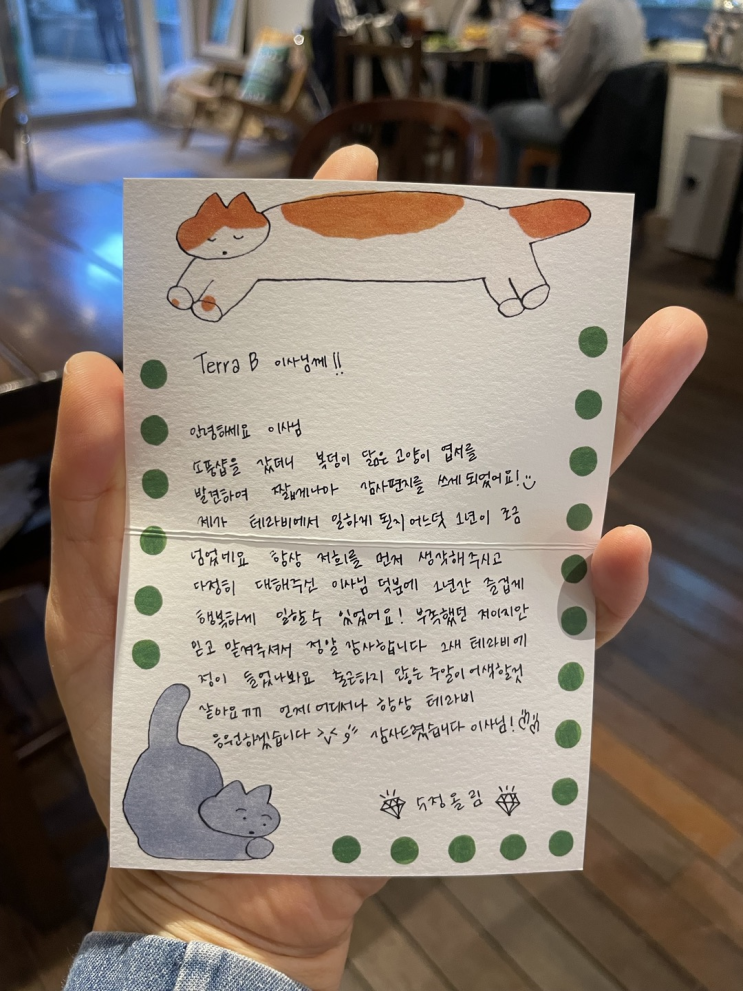 Terra B 이사님께!!
안녕하세요 이사님
소품샵을 갔더니 복덩이 닮은 고양이 엽서를
발견하여 짧게나마 감사편지를 쓰게 되었어요!
제가 테라비에서 일하게 된지 어느덧 1년이 조금
넘었네요 항상 저희를 먼저 생각해주시고
다정히 대해주신 이사님 덕분에 1년간 즐겁게
행복하게 일할 수 있었어요! 부족했던 저이지만
믿고 맡겨주셔서 정말 감사합니다 그새 테라비에
정이 들었나봐요 출근하지 않는 주말이 어색할것
같아요ㅠㅠ 언제 어디서나 항상 테라비
응원하겠습니다 >v< 감사드렸습니다 이사님!
수정올림